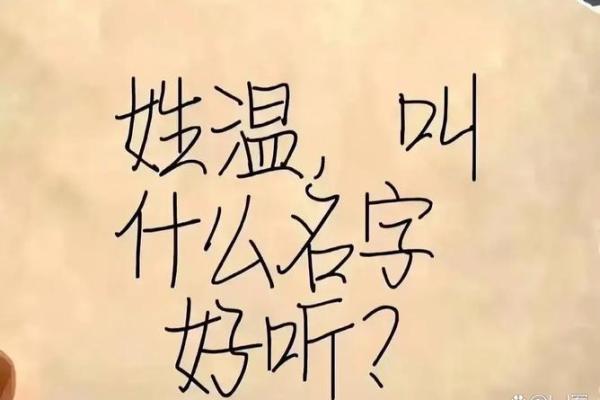 姓温，叫
什么名字
好听？